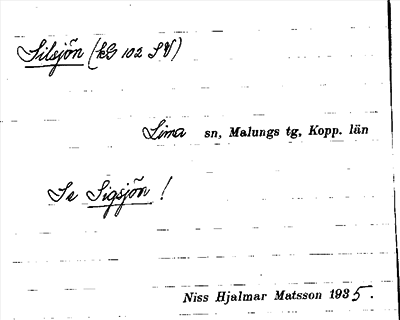 Silsjön (kG 102 SV)
Lima sn, Malungs tg, Kopp. län
Se Sigsjön !
Niss Hjalmar Matsson 1935.